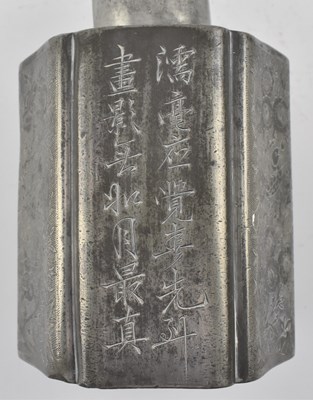 濡毫应覺春先到
畫影無如月最真